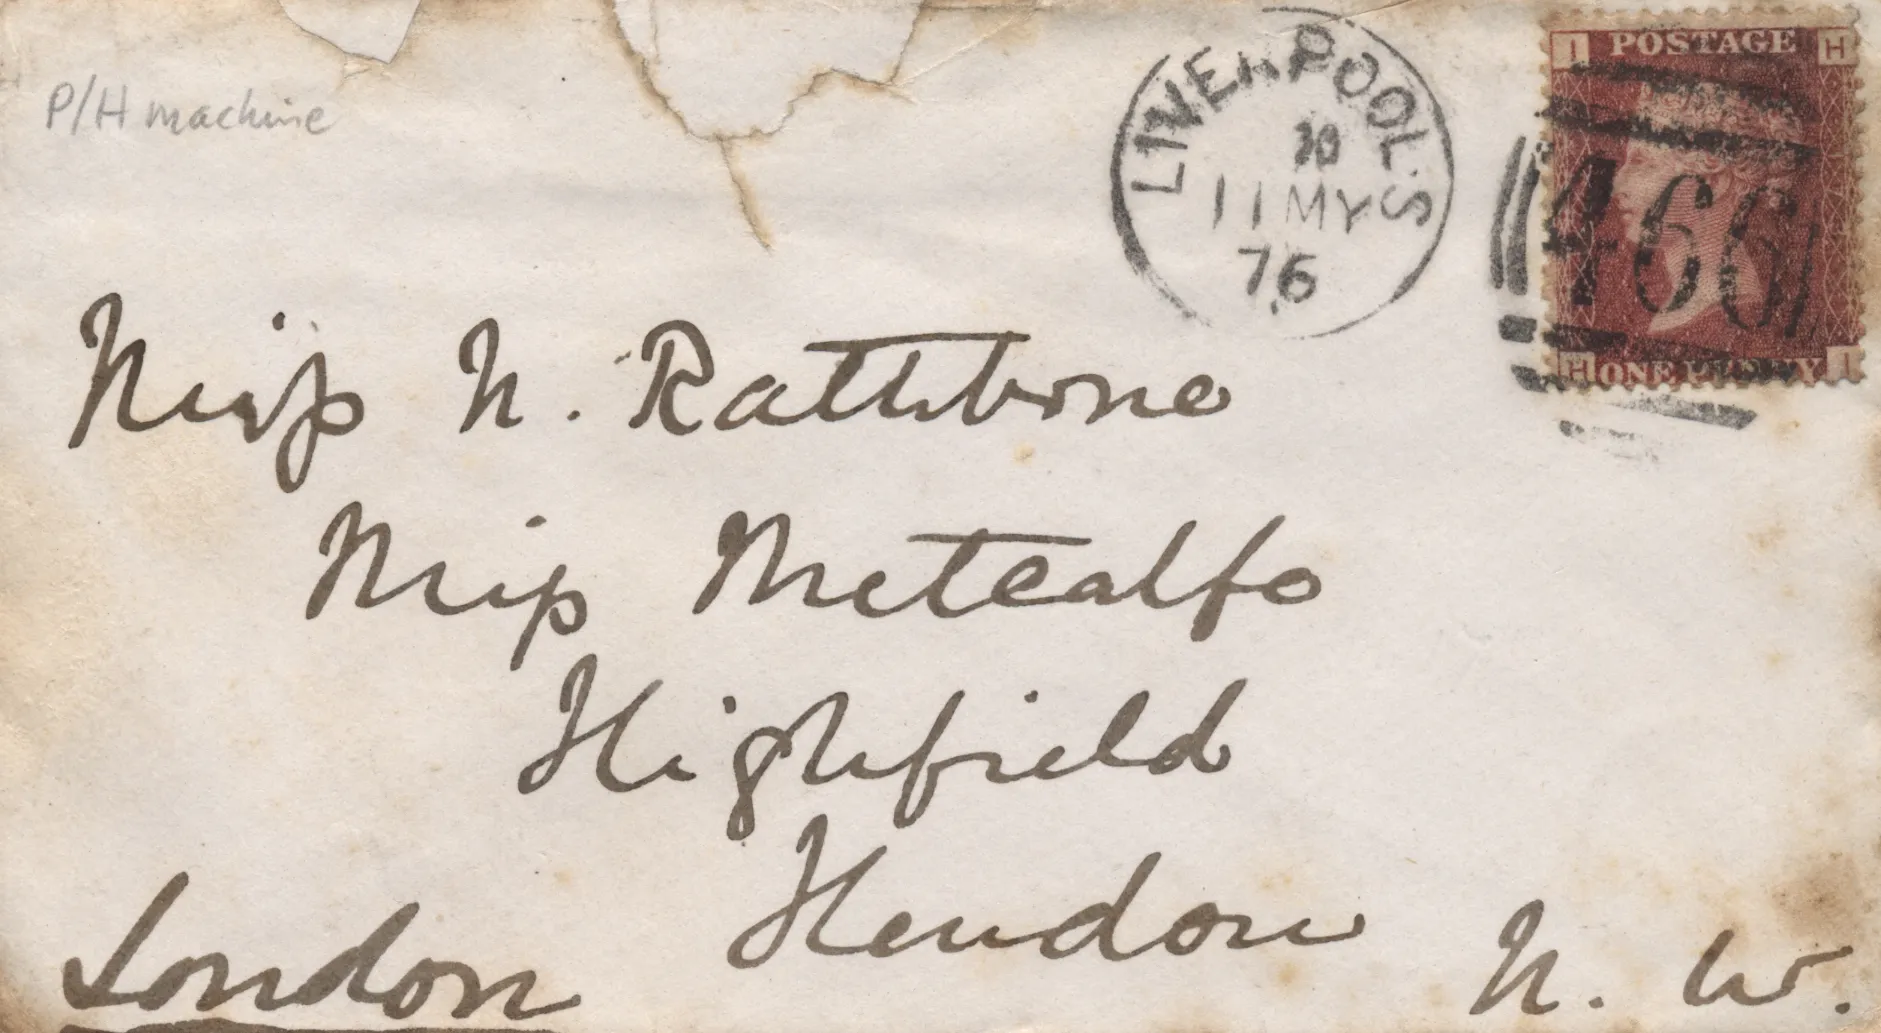 P/H machine
LIVERPOOL·S
20
11 MY
76
I POSTAGE H
466
H ONE PENNY I
Miss N. Rathbone
Miss Metcalfe
Highfield
Hendon
London N. W.